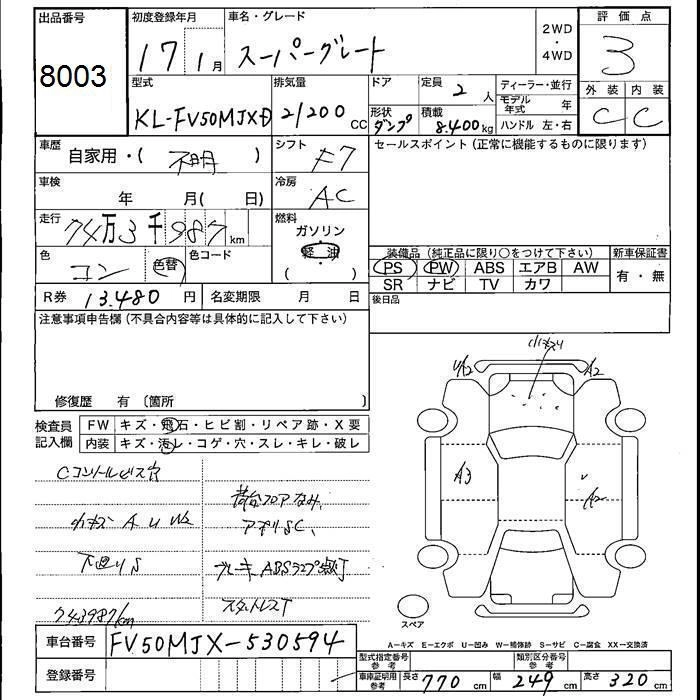 出品番号 初度登録年月 車名・グレード 2WD・4WD 評価点
8003 17年 1月 スーパーグレート 3
型式 排気量 ドア 定員 2人 ディーラー・並行 外装 内装
KL-FV50MJXD 21200cc 形状 ダンプ 積載 8.400kg モデル年式 年 C C
ハンドル 左・右
車歴 自家用・( 不明 ) シフト F7 セールスポイント (正常に機能するものに限ります)
車検 年 月( 日) 冷房 AC
走行 74万3千987km 燃料 ガソリン
軽油
( )
色 コン 色替 色コード
装備品 (純正品に限り○をつけて下さい) 新車保証書
PS PW ABS エアB AW 有・無
SR ナビ TV カワ
R券 13.480円 名変期限 月 日 後日品
注意事項申告欄 (不具合内容等は具体的に記入して下さい)
修復歴 有 〔箇所 〕
検査員記入欄 FW キズ・飛石・ヒビ割・リペア跡・X要
内装 キズ・汚レ・コゲ・穴・スレ・キレ・破レ
Cコンソールビス穴
荷台フロアなみ、
小キズ A U W2
アオリSC、
下廻りS
ブレーキ ABSランプ点灯
743987km
スタットレスT
小キズ
U2
A2
A3
A2
スペア
A=キズ E=エクボ U=凹み W=補修跡 S=サビ C=腐食 XX=交換済
車台番号 FV50MJX-530594
登録番号
型式指定番号 参考 類別区分番号 参考
車庫証明用 参考 長さ 770cm 幅 249cm 高さ 320cm